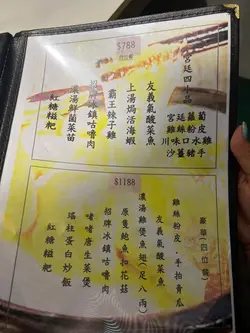 $788
宮廷四小品
宮廷蘿蔔皮
雞絲粉皮
川味口水雞
沙薑豬手
友義氣酸菜魚
上湯焗活海蝦
霸王辣子雞
招牌冰鎮咕嚕肉
濃湯鮮菌菜苗
紅糖糍粑
$1188
豪華(四位用)
雞絲粉皮·手拍青瓜
友義氣酸菜魚
濃湯雞煲魚翅(足八兩)
原隻鮑魚扣花菇
招牌冰鎮咕嚕肉
啫啫唐生菜煲
瑤柱蛋白炒飯
紅糖糍粑